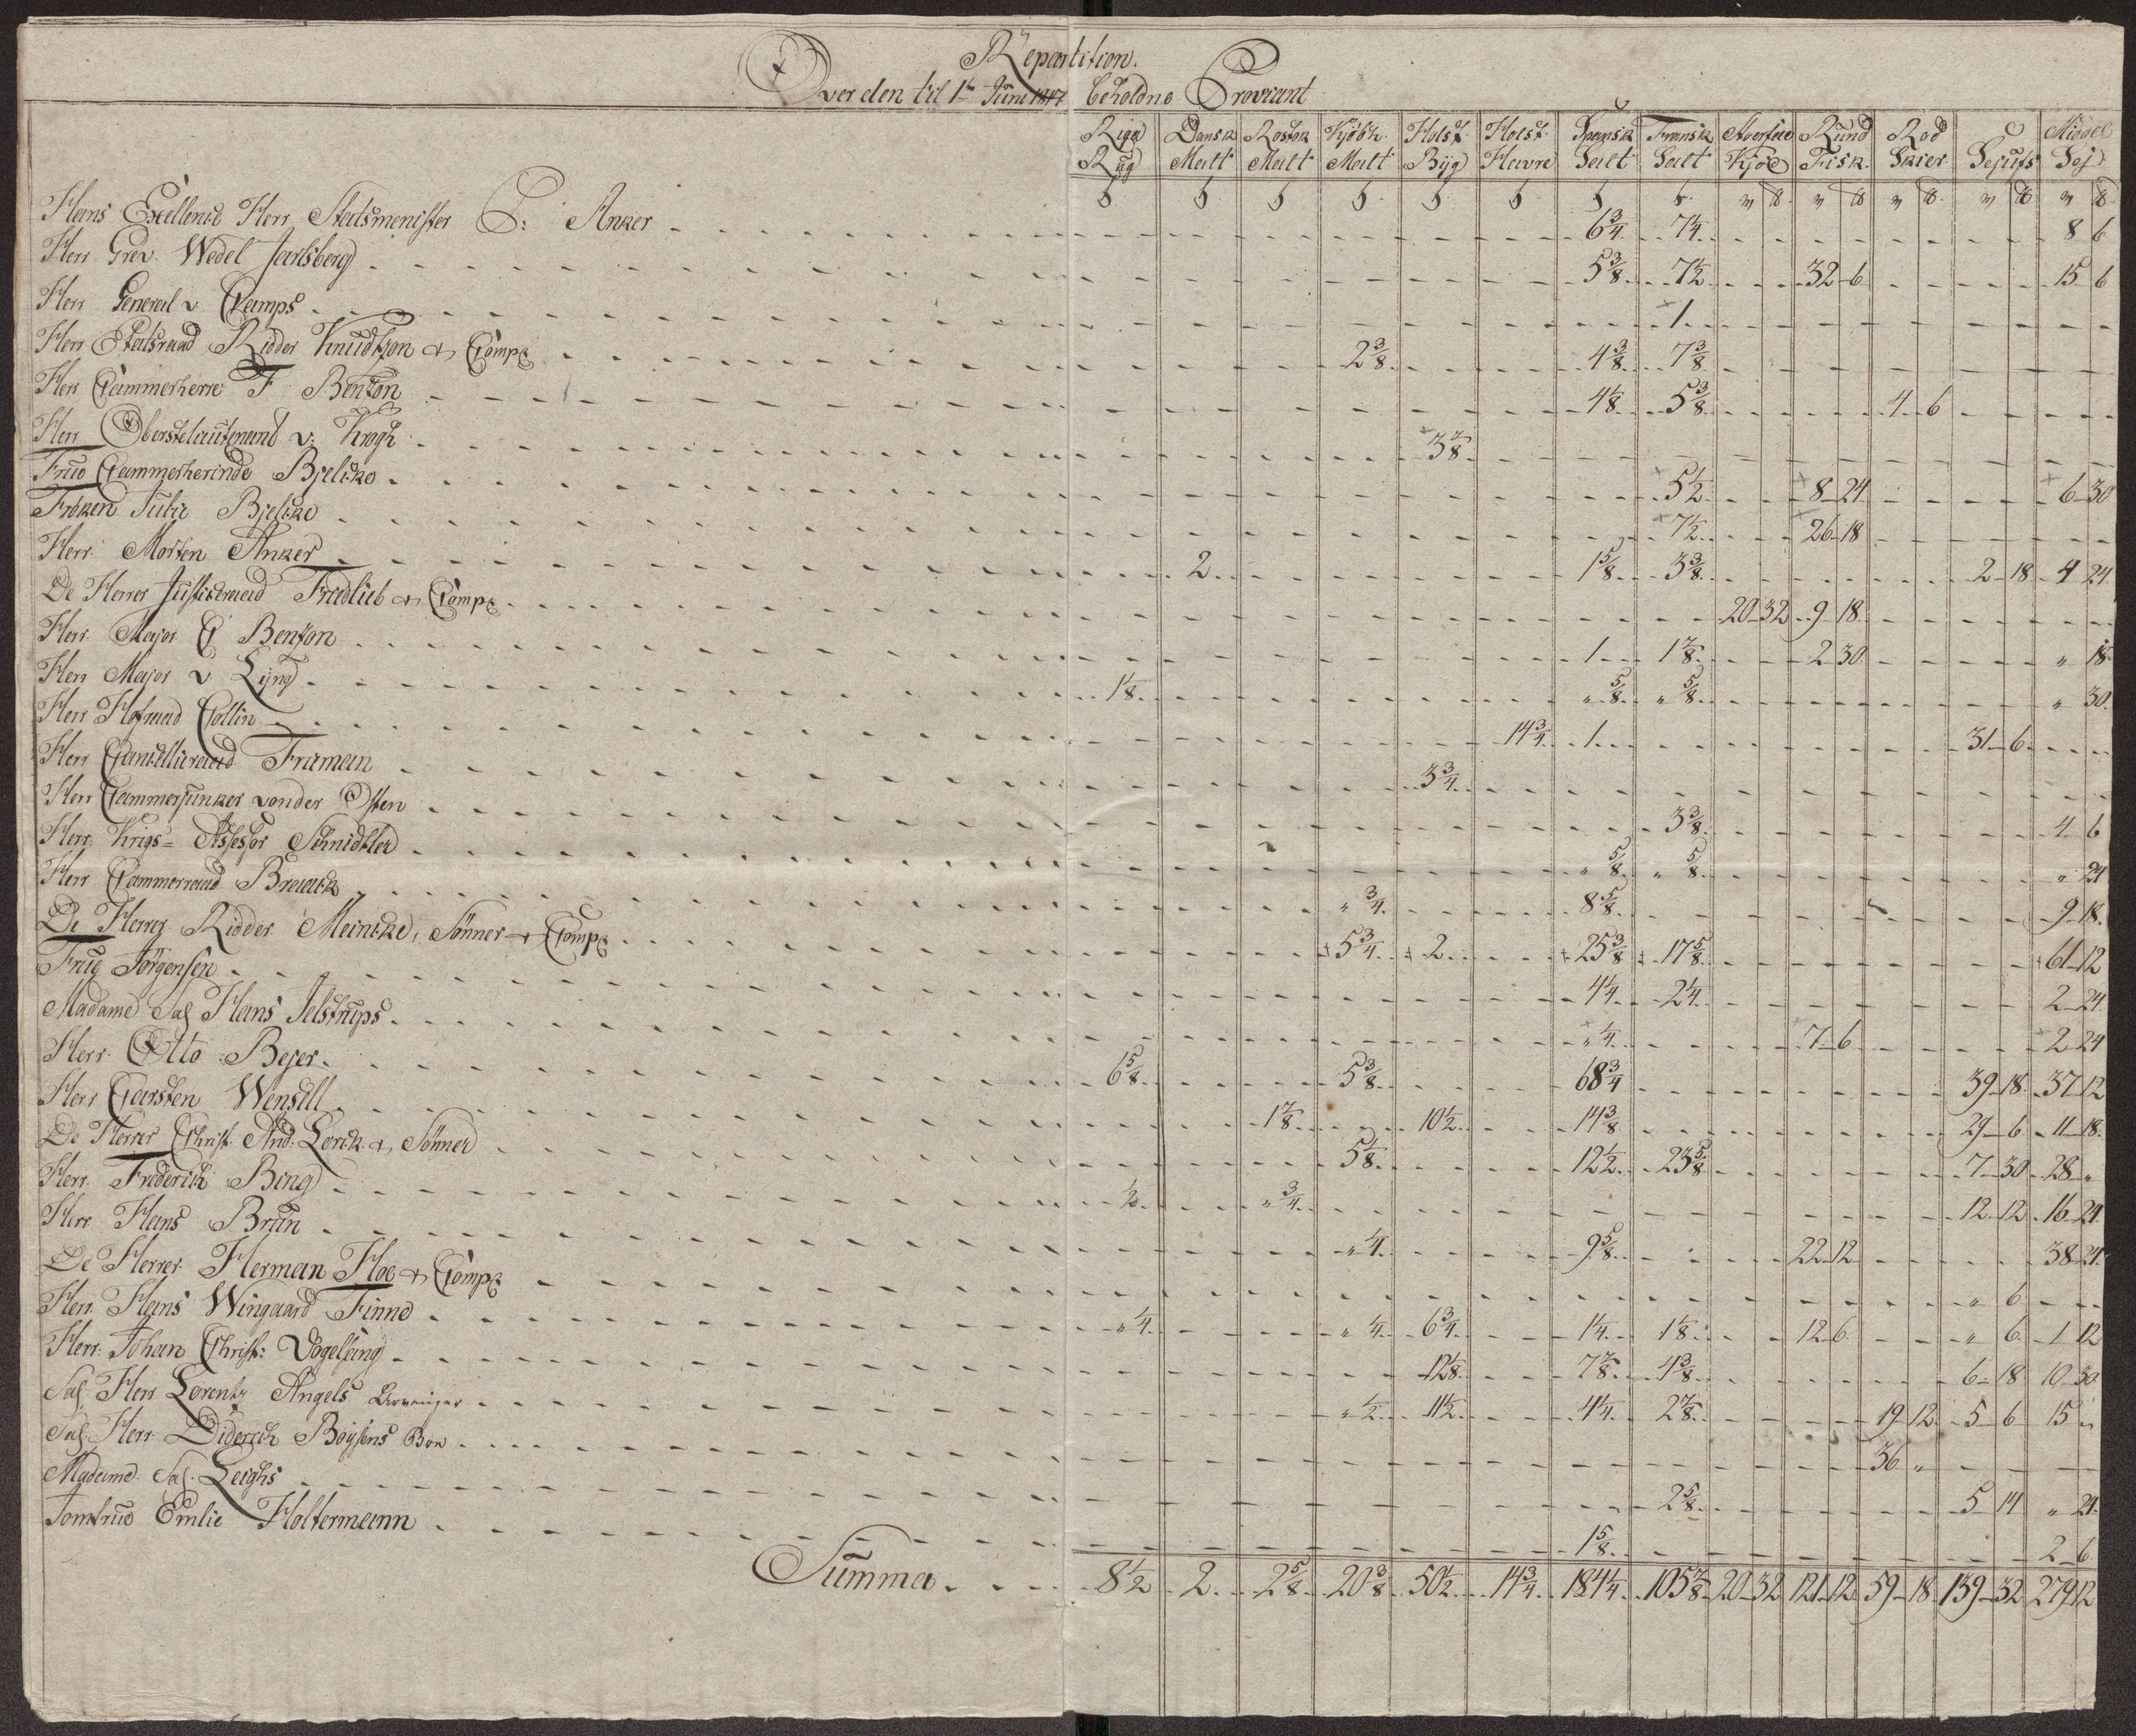 Repartition.
Over den til 1te Juni 1817 beholdne Proviant
Riga Rug | Dansk Malt | Rostok Malt | Kjöbh. Malt | Holst. Byg | Holst. Havre | Spansk Salt | Fransk Salt | Kjöd | Rund Fisk. | Rod Skier | Sejufs | Middel Sej
Hans Excellence Herr Statsmenister C: Anker 6 3/4 7 1/4 8 6
Herr Grev. Wedel Jarlsberg 5 3/8 7 1/2 32 6 15 6
Herr General v Camps 1
Herr Etatsraad Ridder Knudtzon & Comp 2 3/8 4 3/8 7 3/8
Herr Cammerherre F Bentzon 4 1/8 5 3/8 4 6
Herr Oberstelautenant v: Krogh 3 7/8
Frue Cammerherinde Bjelcke 5 1/2 8 24 6 30
Fröken Julie Bjelcke 7 1/2 26 18
Herr Morten Anker 2 1 5/8 3 3/8 2 18 4 24
De Herrer Justiceraad Fredlieb & Comp 20 32 9 18
Herr Major C Bentzon 1 1 7/8 2 30 " 18
Herr Major v Lÿng 1 1/8 " 5/8 " 5/8 " 30
Herr Hofraad Collin 14 3/4 1 31 6
Herr Cancelliraad Framan 3 3/4
Herr Cammerjunker von der Osten 3 3/8 4 6
Herr Krigs= Assessor Schnidtler " 5/8 " 5/8 " 24
Herr Cammerraad Breack " 3/4 8 5/8 9 18
De Herrer Ridder Meincke, Sönner & Comp 5 3/4 2 25 3/8 17 5/8 61 12
Frue Jörgensen 4 1/4 2 1/4 2 24
Madame Sal Hans Jelstrups " 1/4 7 6 2 24
Herr Otto Bejer 6 5/8 5 3/8 68 3/4 39 18 37 12
Herr Carsten Wensell 1 7/8 10 1/2 14 3/8 29 6 11 18
De Herrer Christ. And. Lorck & Sönner 5 1/8 12 1/2 23 5/8 7 30 28 "
Herr Frederich Bing 1/2 " 3/4 12 12 16 24
Herr Hans Brun " 1/4 9 5/8 22 12 38 24
De Herrer Herman Hoe & Comp " 6
Herr Hans Wingaard Finne " 1/4 " 1/4 6 3/4 1 1/4 1 1/8 12 6 " 6 1 12
Herr Johan Christ: Vogelsang 12 1/8 7 7/8 4 3/8 6 18 10 30
Sal. Herr Lorentz Angels Arvinger " 1/2 11 1/2 4 1/4 2 7/8 19 12 5 6 15 "
Sal. Herr Diderich Böysens Boe 36 "
Madame Sal. Leighs 2 5/8 5 14 " 24
Jomfrue Emlie Holtermann 1 5/8 2 6
Summa 8 1/2 2 2 5/8 20 3/8 50 1/2 14 3/4 184 1/4 105 7/8 20 32 121 12 59 18 139 32 279 12